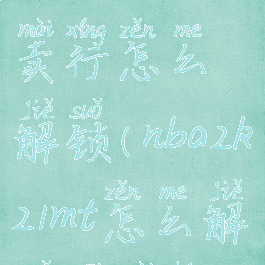 mài xíng zěn me
卖行怎么
jiě suǒ
解锁(nba2k
zěn me jiě
21mt怎么解